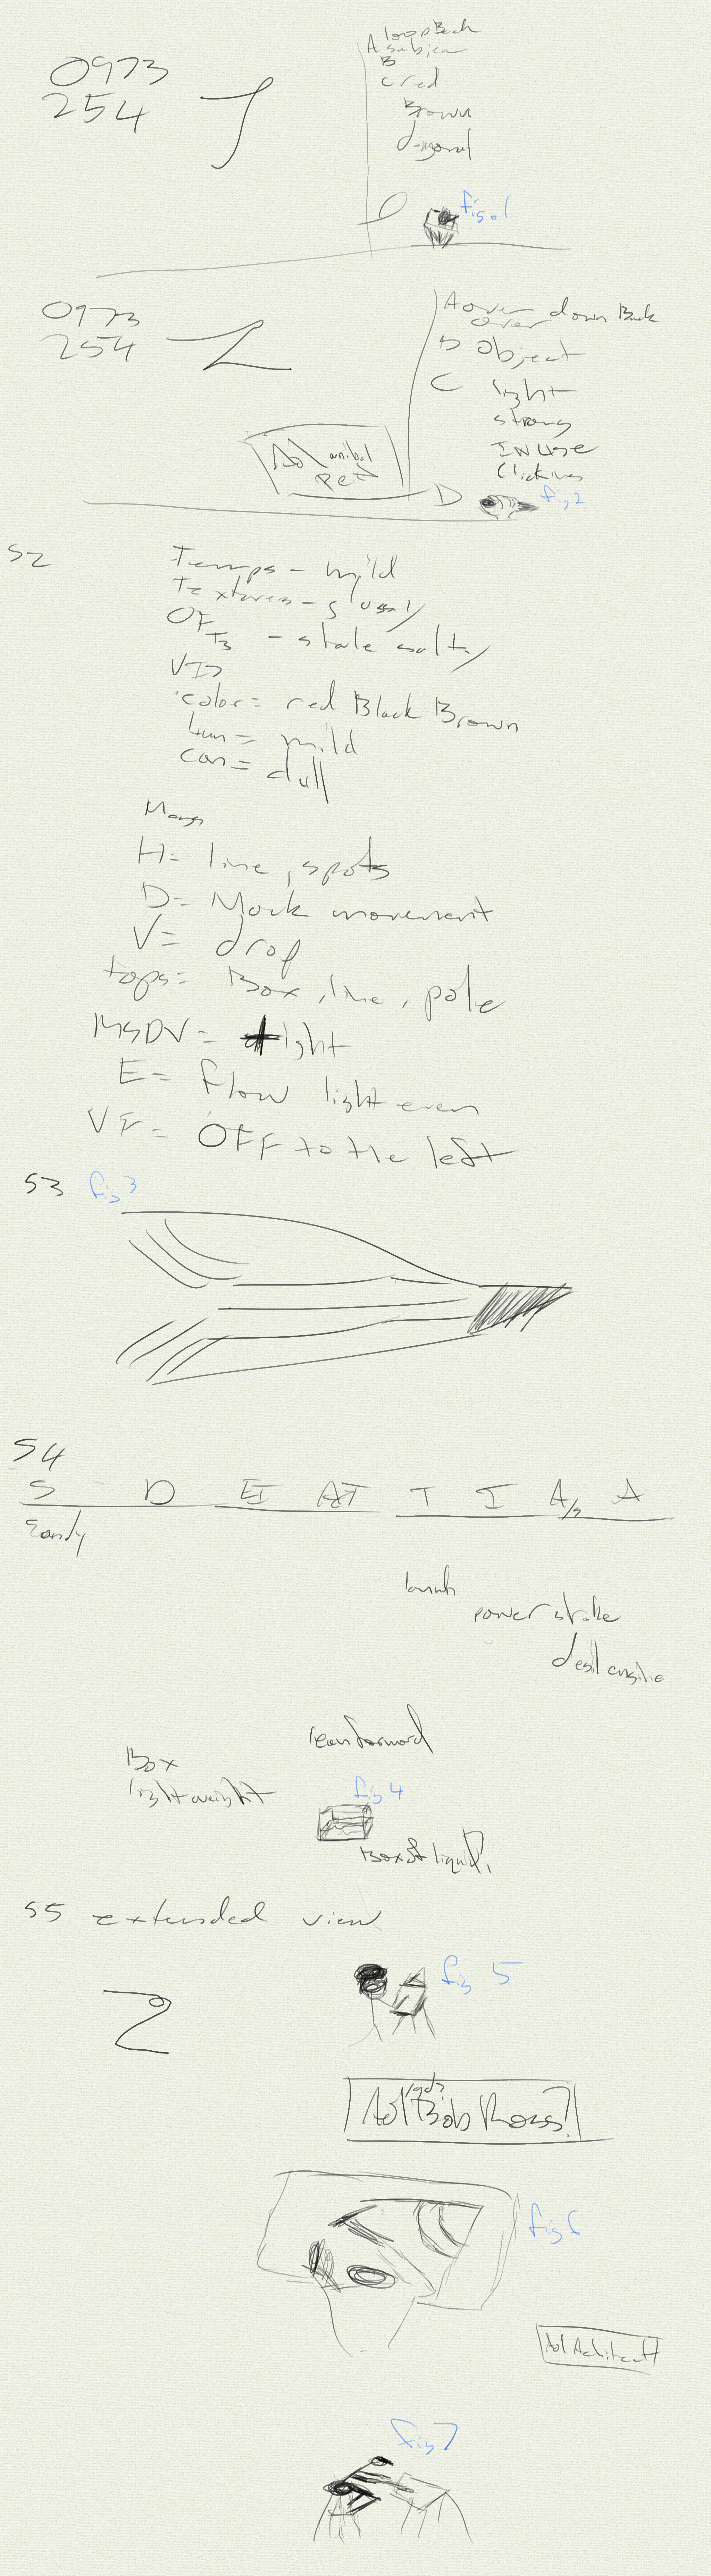 0973
254
loop Back
A.
B
C red
Brown
fig 01
0973
254
A over down Back
over
B Object
C light
strong
IN USE
Clicking
D
fig 2
Aol animal
pet
S2
Temps - mild
Textures - glossy
OF
- stale salty
VIS
color = red Black Brown
Lum = mild
con = dull
Mags
H= line, spots
D= Mock movement
V= drop
tops= Box, line, pole
MSDV= light
E= flow light even
VF= OFF to the left
S3 fig 3
S4
S D EI AI T I A/s A
power stroke
lean forward
Box
light weight
fig 4
Box of liquid,
S5 extended view
2
fig 5
Aol Bob Ross?
fig 6
Aol Architect
fig 7